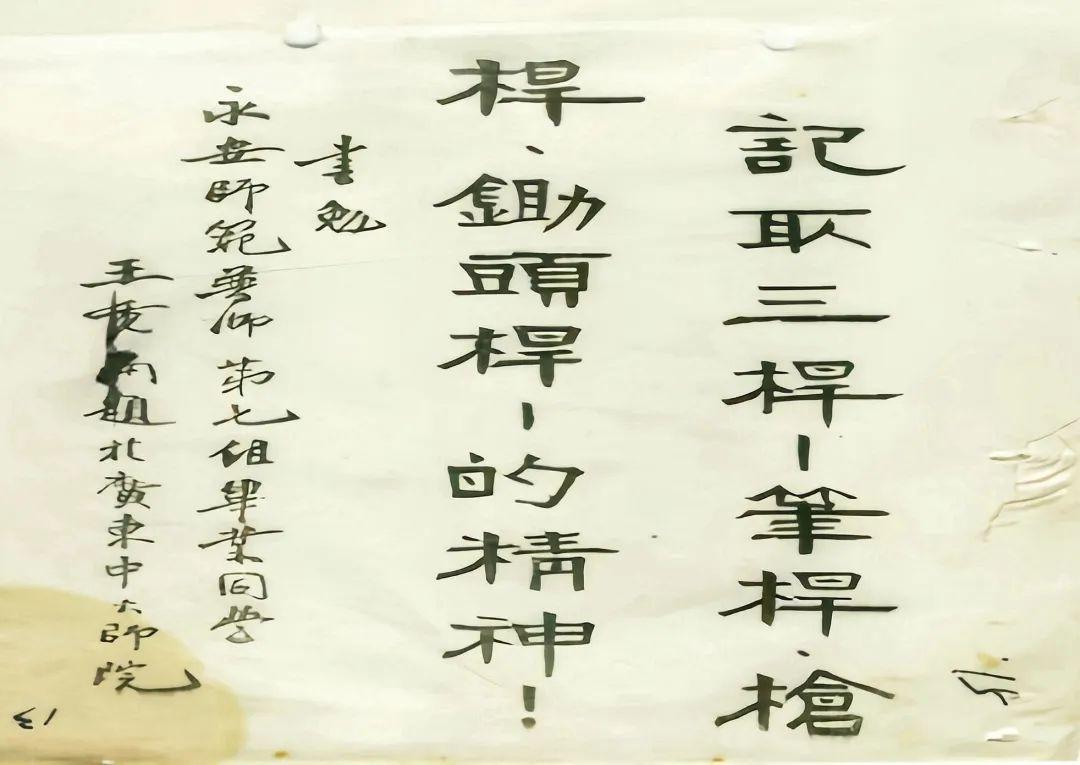 記取三桿－筆桿、槍
桿、鋤頭桿－的精神！
書勉
永安師範普師第七組畢業同學
王 祖北廣東中大師院
51.